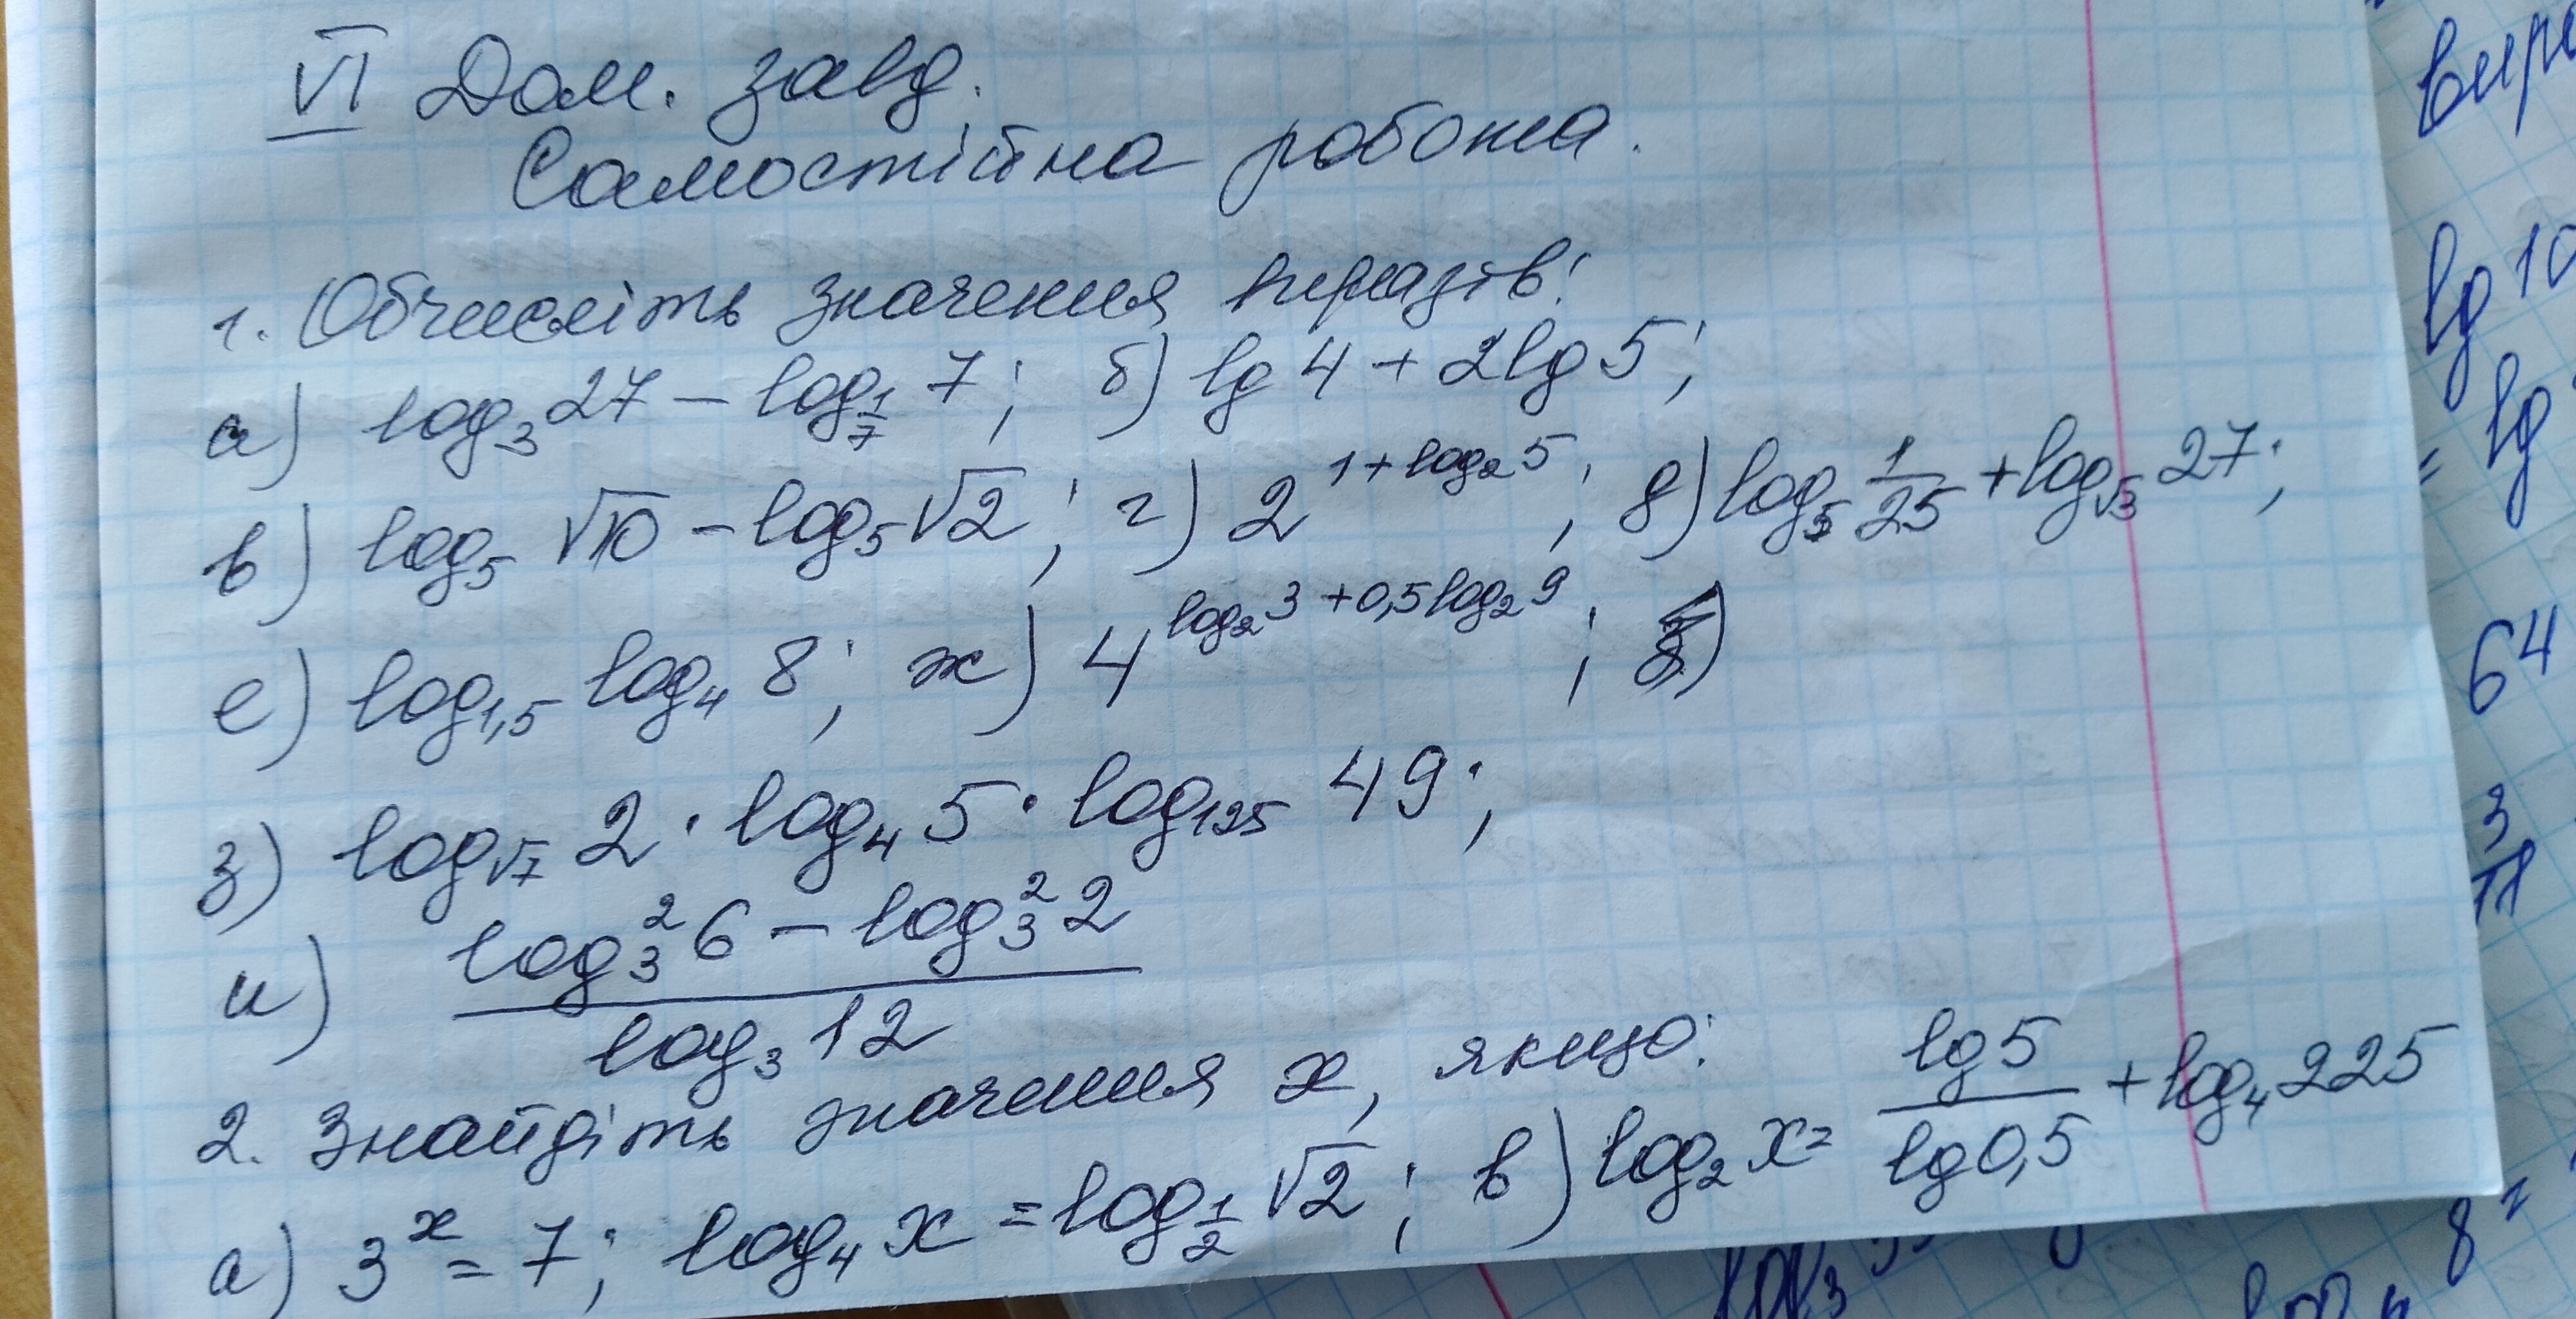 VI Дом. завд.
Самостійна робота.
1. Обчисліть значення виразів:
а) log₃27 − log_{1/7} 7; б) lg 4 + 2lg 5;
в) log₅ √10 − log₅ √2; г) 2^{1+log₂5}; д) log₅ 1/25 + log_{√3} 27;
е) log_{1,5} log₄ 8; ж) 4^{log₂3 + 0,5log₂9}; з)
з) log_{√7} 2 · log₄ 5 · log₁₂₅ 49;
и) (log₃² 6 − log₃² 2) / log₃ 12
2. Знайдіть значення x, якщо:
а) 3^x = 7; log₄ x = log_{1/2} √2; в) log₂ x = lg 5 / lg 0,5 + log₄ 225
lg 10
= lg
64
3
8 =
log₃